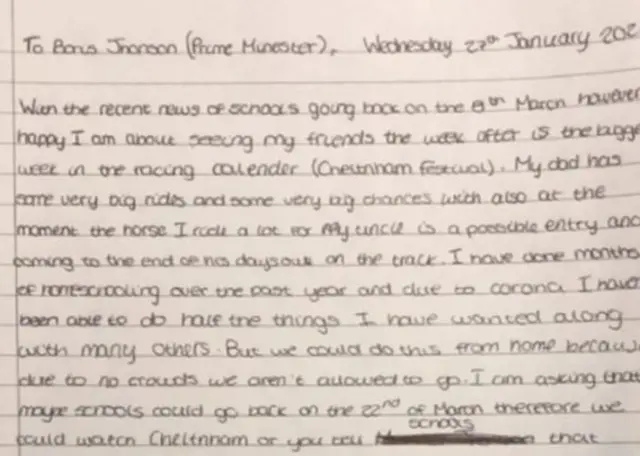 To Boris Jhonson (Prime Minester), Wednesday 27th January 202
With the recent news of schools going back on the 8th March however
happy I am about seeing my friends the week after is the bigge
week in the racing calender (Cheltnham festival). My dad has
some very big rides and some very big chances with also at the
moment the horse I rode a lot for My uncle is a possible entry and
coming to the end of his days out on the track. I have done months
of homeschooling over the past year and due to corona I haven
been able to do half the things I have wanted along
with many others. But we could do this from home becau
due to no crowds we aren't allowed to go. I am asking that
maybe schools could go back on the 22nd of March therefore we
could watch Cheltnham or you tell schools that